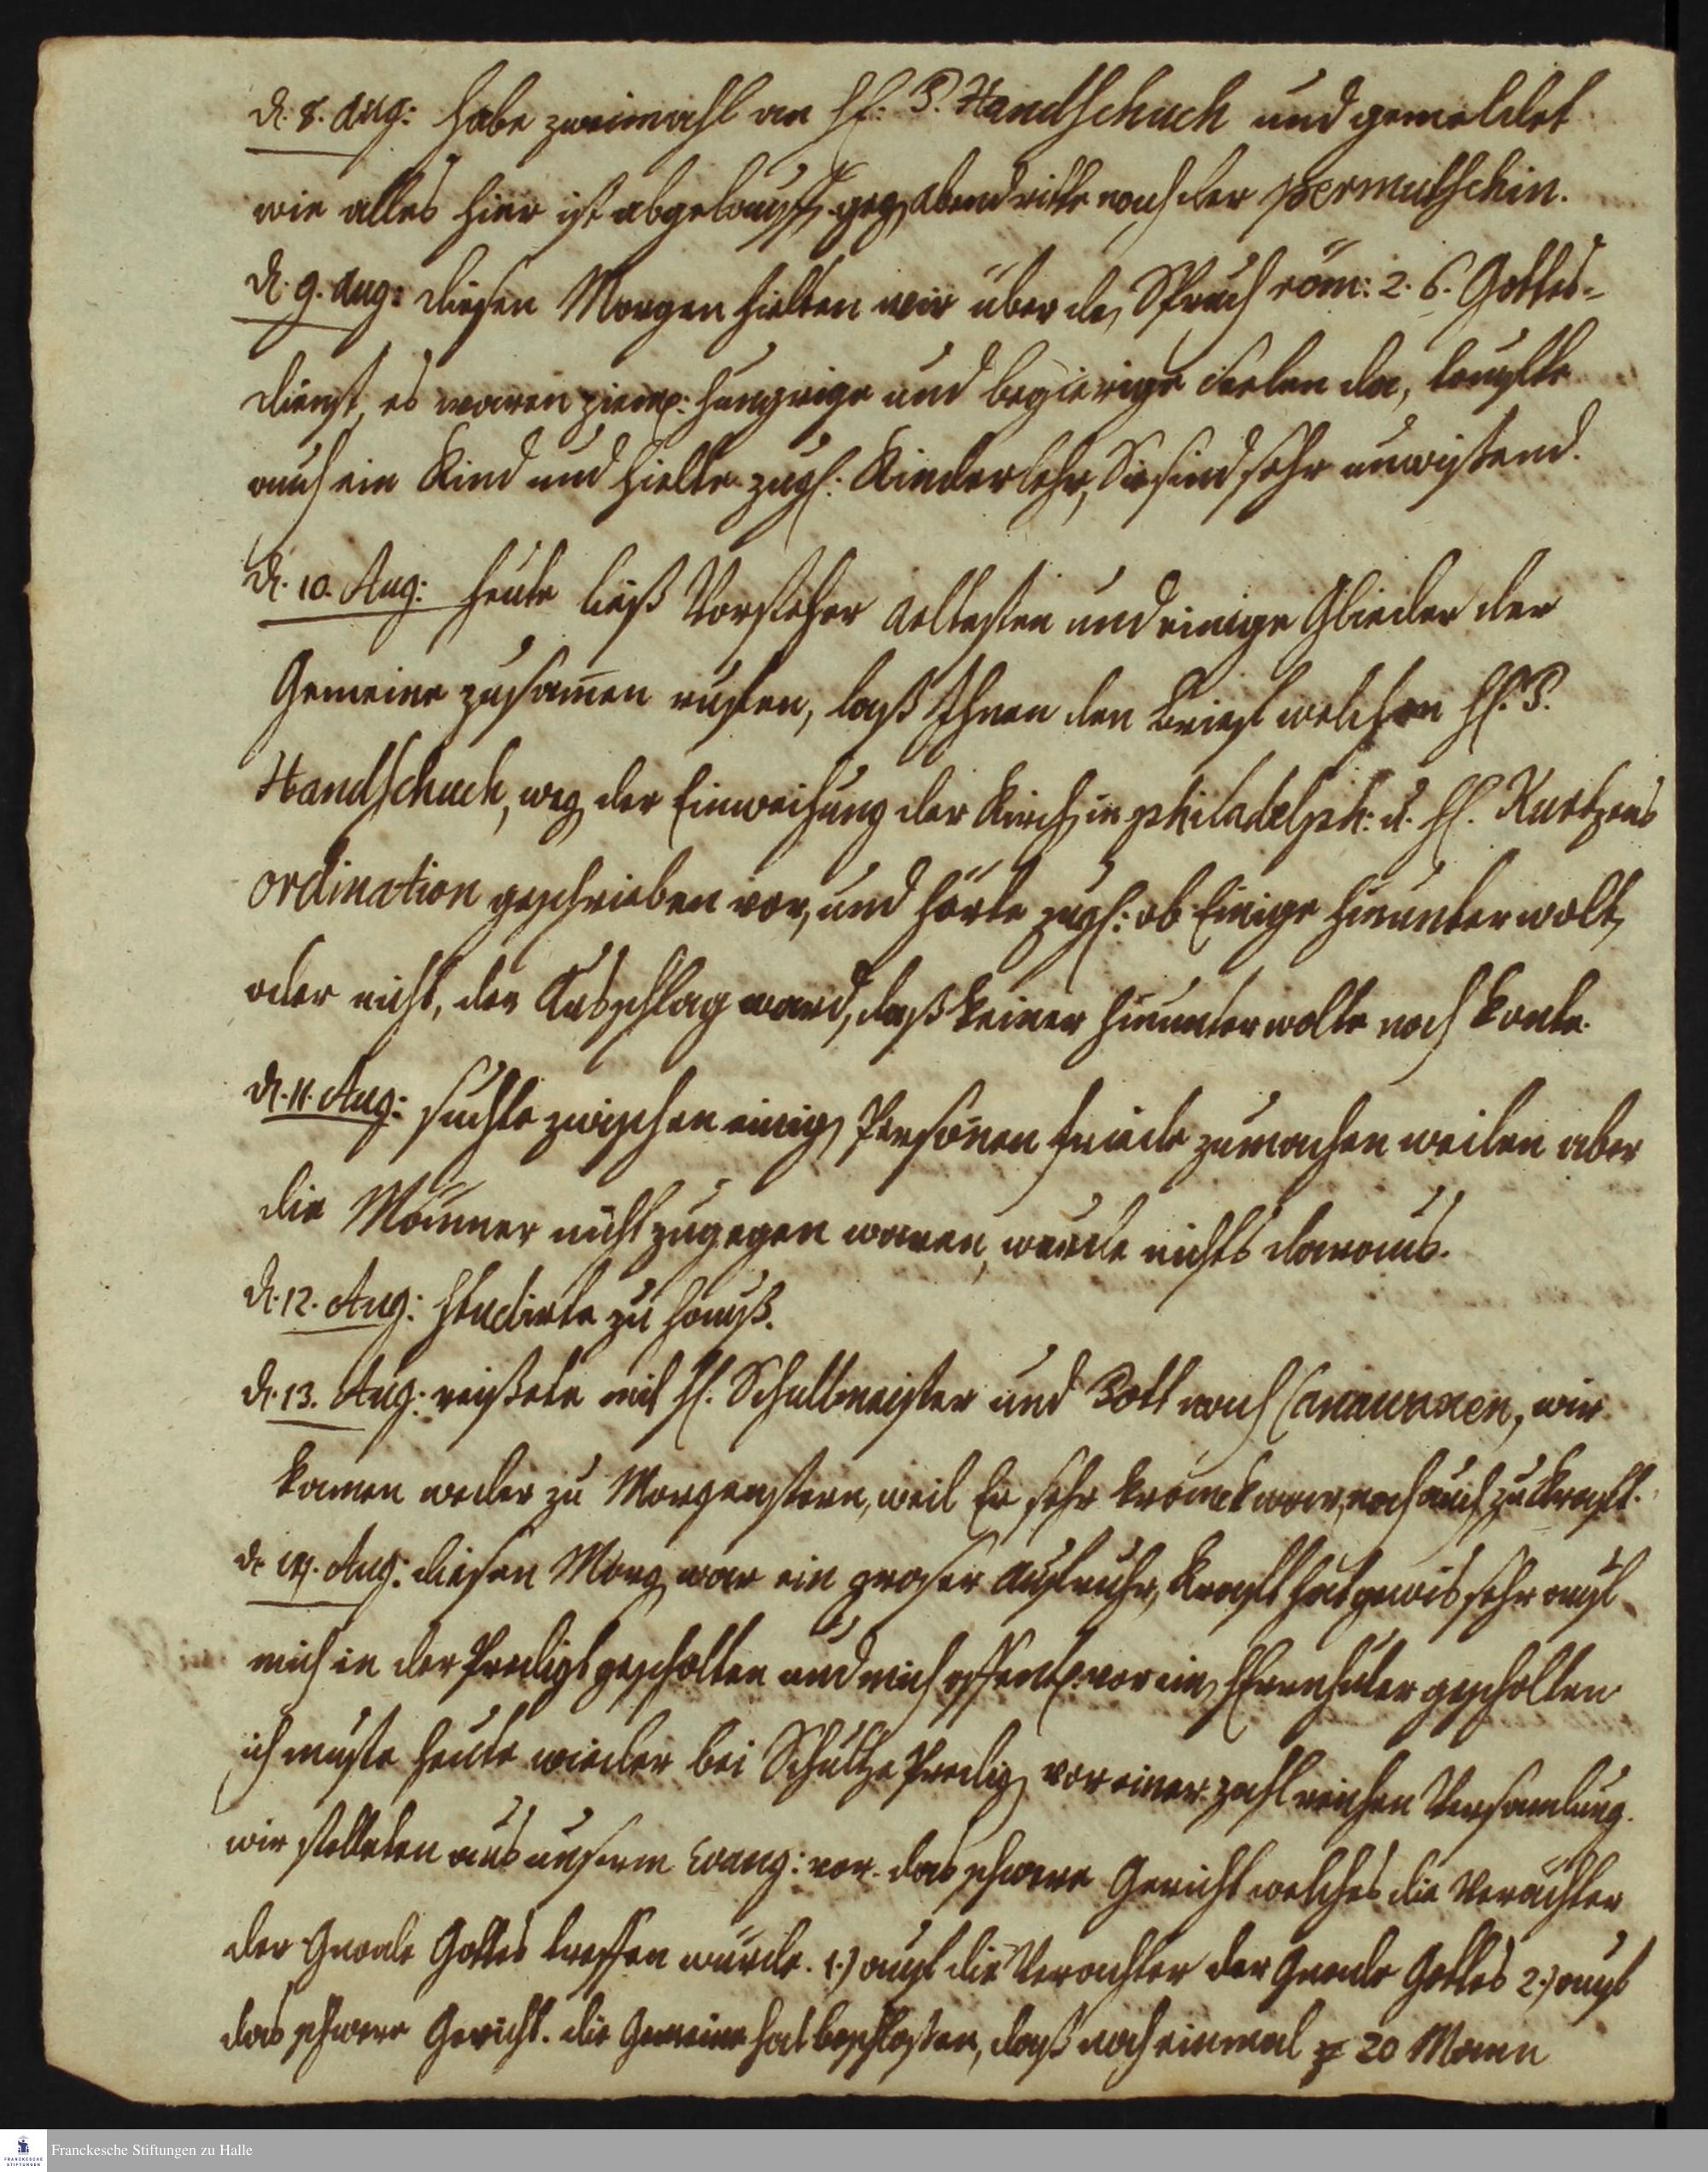 d. 8. Aug: habe zweimahl an H: P. Handschuch und gemeldet
wie alles hier ist abgelauffen, gegen Abend ritte nach der permutschin.
d. 9. Aug: diesen Morgen hielten wir über den Spruch röm: 2. 6. Gottes-
dienst, es waren zieml: hungrige und begierige Seelen da, tauffte
auch ein Kind und hielte zugl: Kinderlehr, Sie sind sehr unwissend.
d. 10. Aug: heute ließ Vorsteher Aeltesten und einige Glieder der
Gemeine zusam̄en ruffen, laß Ihnen den Brieff welchen H. P.
Handschuch, wegen der Einweihung der Kirchen in philadelph: u. H. Kurtzens
ordination geschrieben vor, und hörte zugl: ob Einige hinunter wolten
oder nicht, der Ausschlag ward, daß keiner hinunter wolte noch konte.
d. 11. Aug: suchte zwischen einigen Persōnen friede zu machen weilen aber
die Männer nicht zugegen waren, wurde nichts daraus.
d. 12. Aug: studirte zu hauß.
d. 13. Aug: reißete mit H. Schultmeister und Bott nach Canawaxen, wir
kamen weder zu Morgenstern, weil Er sehr kranck war, noch auch zu Krafft.
d. 14. Aug: diesen Morgen war ein groser Auffruhr, Krafft hat gewis sehr auff
mich in der Predigt gescholten und mich offentl. vor einen Herrnhuter gescholten
ich muste heute wieder bei Schultze Predigen vor einer zahlreichen Versamlung.
wir stelleten aus unserm Evang: vor. das schwere Gericht welches die Verächter
der Gnade Gottes treffen würde. 1.) auff die Verächter der Gnade Gottes 2.) auff
das schwere Gericht. die Gemeine hat beschlossen, daß noch einmal 20 Mann
Franckesche Stiftungen zu Halle